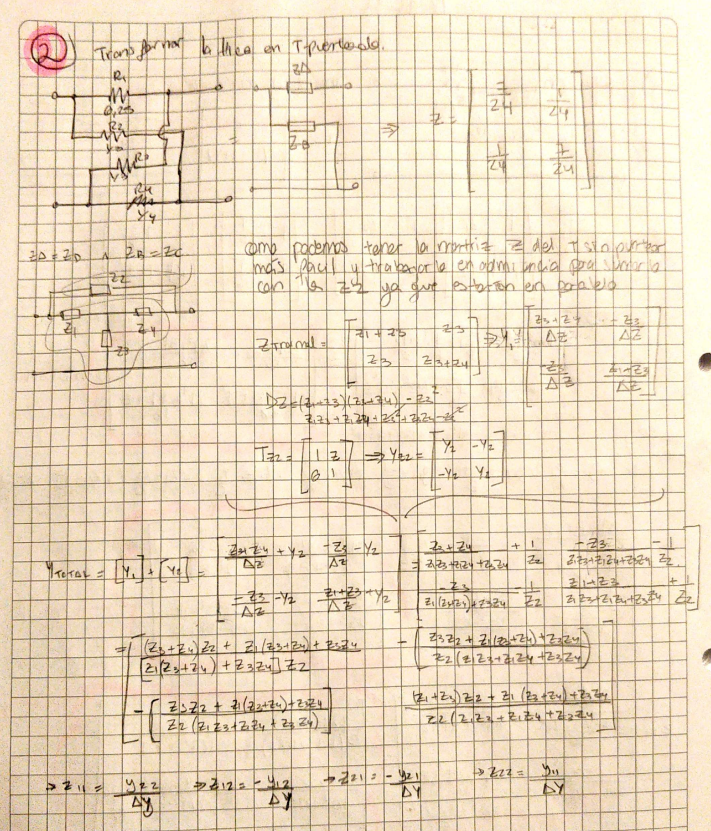 2 Transformar la lica en T-puenteado.
R1
0,25
R2
R3
R4
1/4
ZA
ZB
=
⇒ Z = [ 7/24 1/24
1/24 7/24 ]
ZA = ZD ∧ ZB = ZC
Z2
Z1 Z4
Z3
como podemos tener la matriz Z del T sin puntear
más facil y trabajarla en admitancia para sumarla
con la Z2 ya que estarían en paralelo
Z = [ Z1+Z3 Z3 ⇒ Y1 = [ Z3+Z4/ΔZ -Z3/ΔZ
Z3 Z3+Z4 ] -Z3/ΔZ Z1+Z3/ΔZ ]
DZ = (Z1+Z3)(Z3+Z4) - Z3²
Z1Z3+Z1Z4+Z3²+Z3Z4-Z3²
TZ2 = [ 1 Z ⇒ YZ2 = [ Y2 -Y2
0 1 ] -Y2 Y2 ]
YTOTAL = [Y1] + [Y2] = [ Z3+Z4/ΔZ + Y2 -Z3/ΔZ - Y2 = [ Z3+Z4/Z1Z3+Z1Z4+Z3Z4 + 1/Z2 -Z3/Z1Z3+Z1Z4+Z3Z4 - 1/Z2
-Z3/ΔZ - Y2 Z1+Z3/ΔZ + Y2 ] -Z3/Z1(Z3+Z4)+Z3Z4 - 1/Z2 Z1+Z3/Z1Z3+Z1Z4+Z3Z4 + 1/Z2 ]
= [ (Z3+Z4)Z2 + Z1(Z3+Z4)+Z3Z4/[Z1(Z3+Z4)+Z3Z4]Z2 -(Z3Z2+Z1(Z3+Z4)+Z3Z4/Z2(Z1Z3+Z1Z4+Z3Z4))
-[Z3Z2+Z1(Z3+Z4)+Z3Z4/Z2(Z1Z3+Z1Z4+Z3Z4)] (Z1+Z3)Z2+Z1(Z3+Z4)+Z3Z4/Z2(Z1Z3+Z1Z4+Z3Z4 ]
→ Z11 = Y22/ΔY ⇒ Z12 = -Y12/ΔY → Z21 = -Y21/ΔY → Z22 = Y11/ΔY